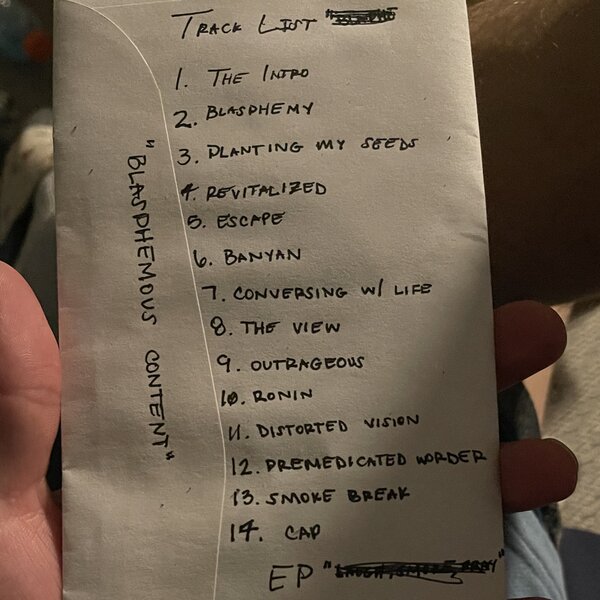 Track List
1. The Intro
2. BLASPHEMY
3. PLANTING MY SEEDS
4. REVITALIZED
5. ESCAPE
6. BANYAN
7. CONVERSING W/ LIFE
8. THE VIEW
9. OUTRAGEOUS
10. RONIN
11. DISTORTED VISION
12. PREMEDICATED WORDER
13. SMOKE BREAK
14. CAP
EP
"BLASPHEMOUS CONTENT"